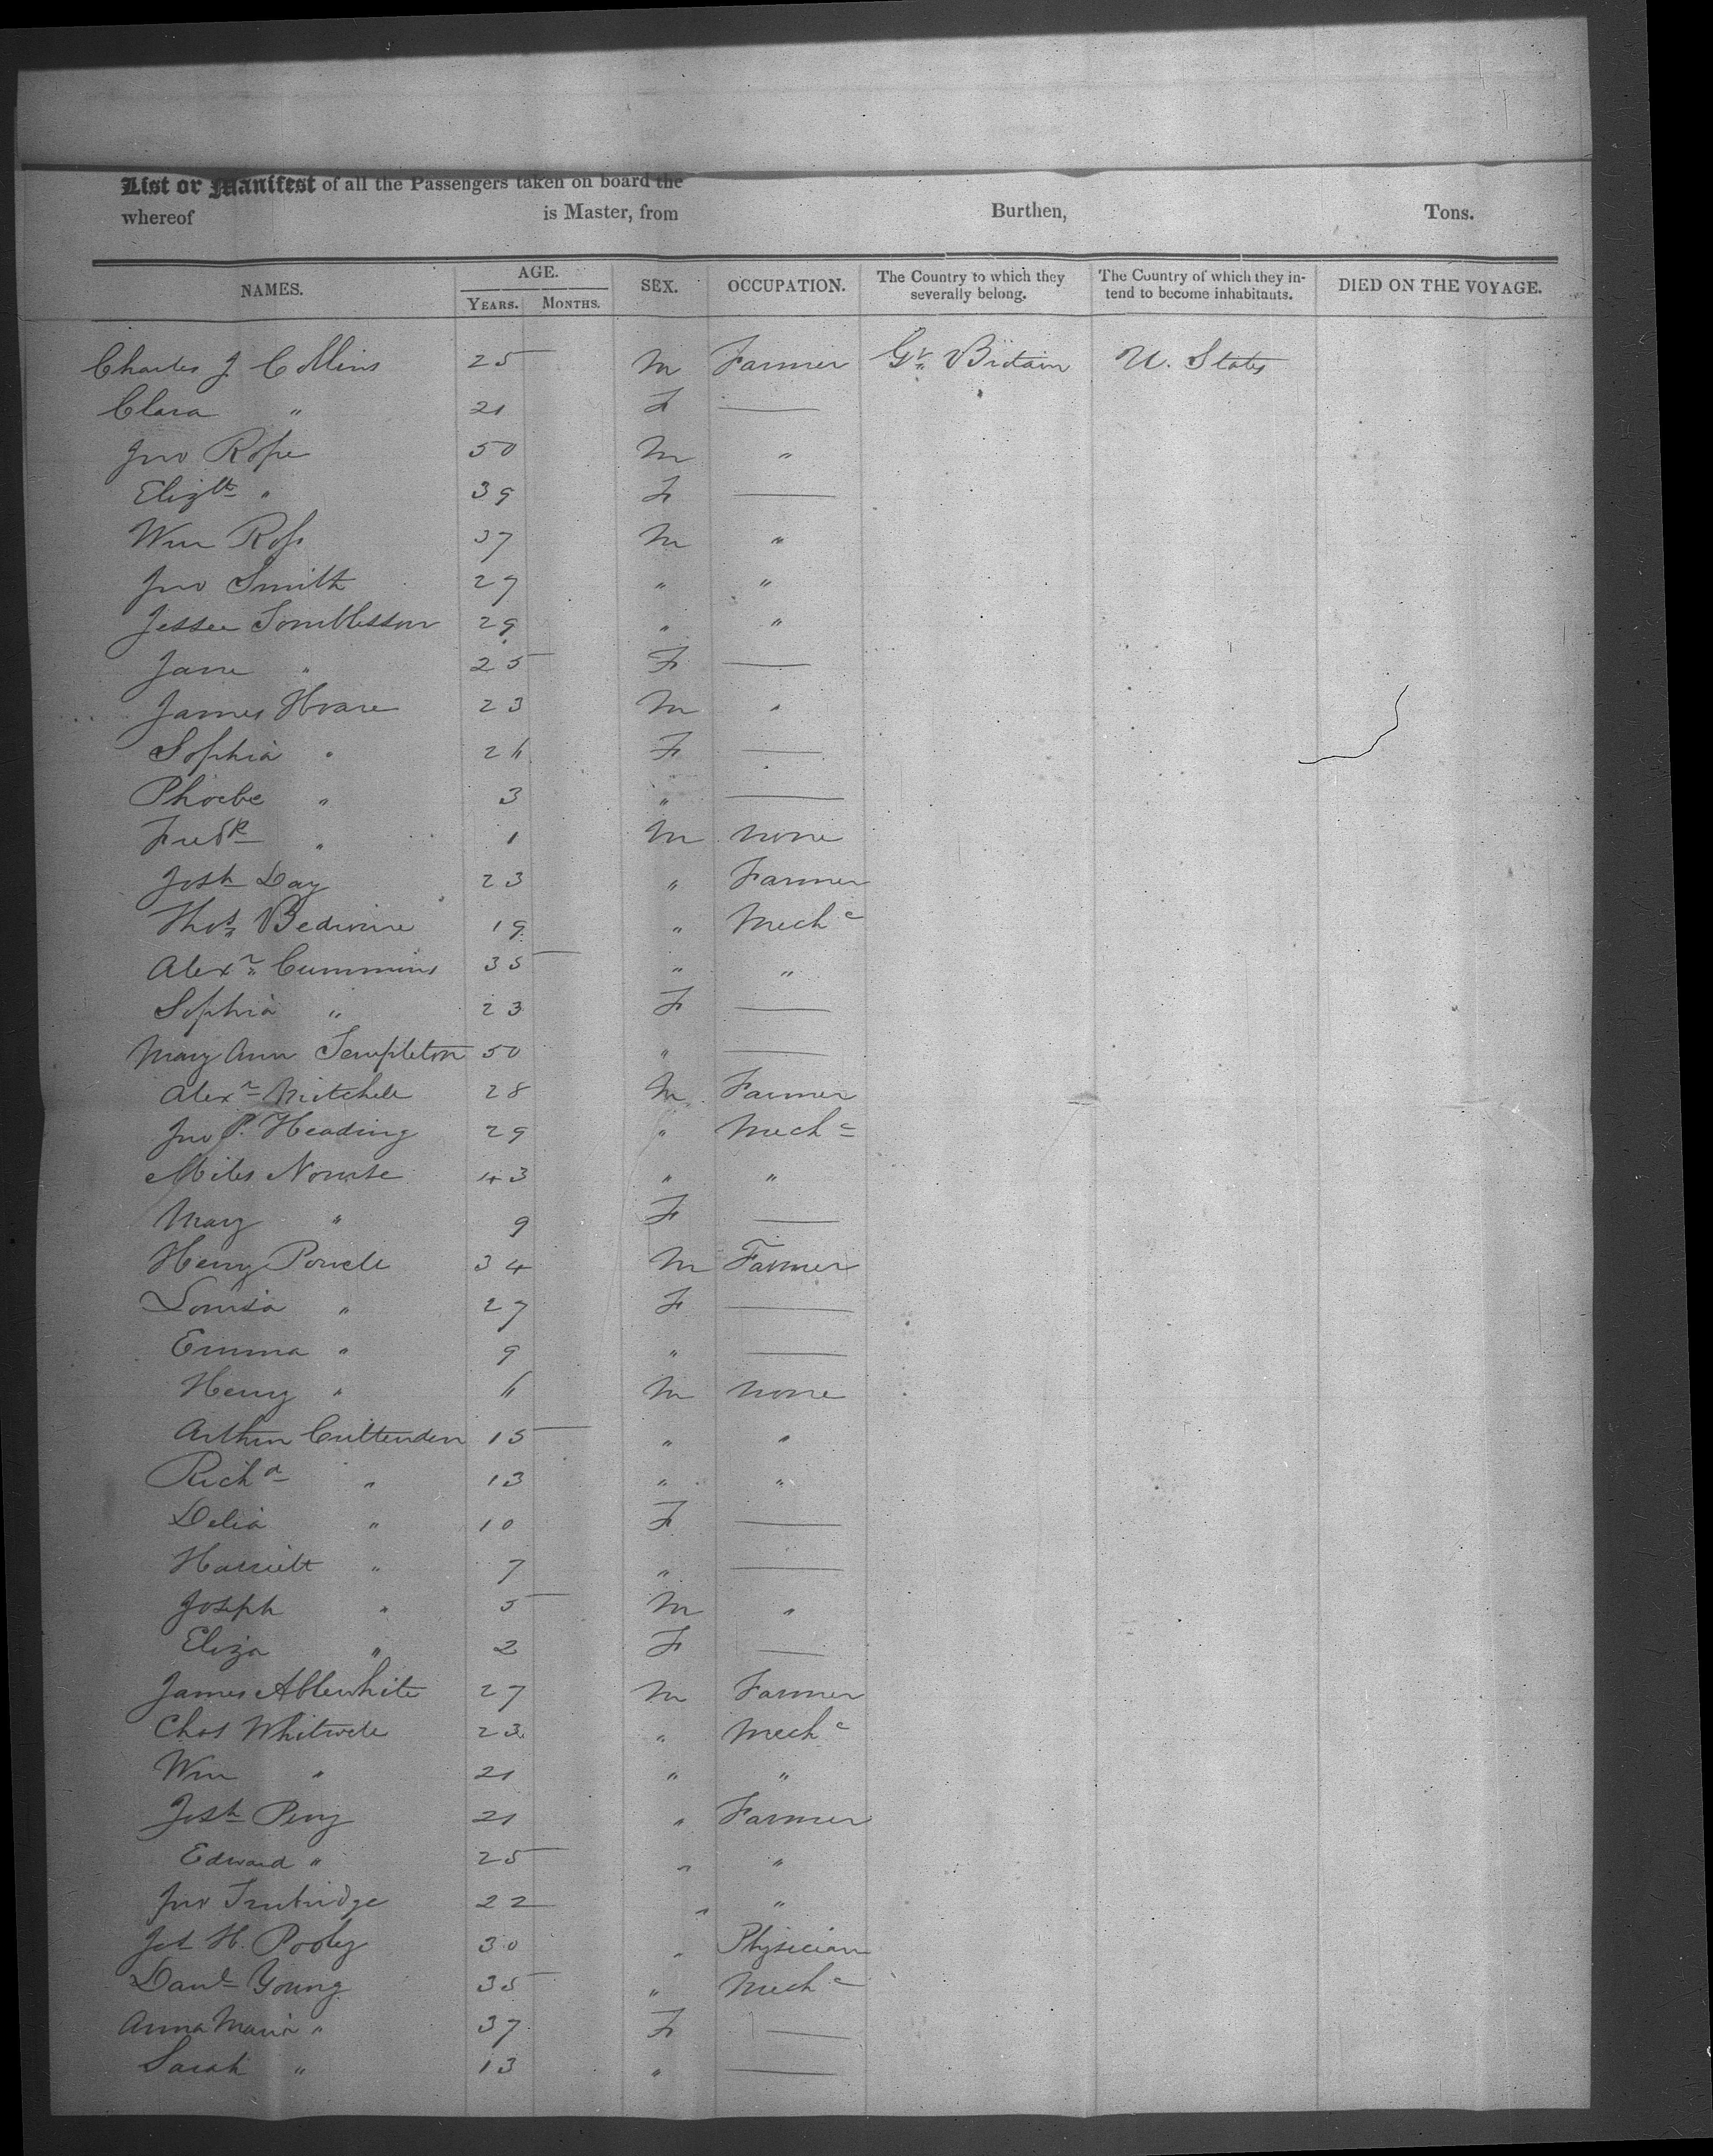 List or Manifest of all the Passengers taken on board the
whereof is Master, from Burthen, Tons.
NAMES. AGE. YEARS. MONTHS. SEX. OCCUPATION. The Country to which they severally belong. The Country of which they intend to become inhabitants. DIED ON THE VOYAGE.
Charles J Collins 25 M Farmer Gt Britain U. States
Clara " 21 F —
Jno Rope 50 M "
Elizth " 39 F —
Wm Ross 37 M "
Jno Smith 27 " "
Jessee Tomblesson 29 " "
Jane " 25 F —
James Hoare 23 M "
Sophia " 26 F —
Phoebe " 3 " —
Fredk " 1 M none
Josh Day 23 " Farmer
Thos Bedwine 19 " Mechc
Alexr Cummins 35 " "
Sophia " 23 F —
Mary Ann Templeton 50 " —
Alexr Mitchell 28 M Farmer
Jno P. Heading 29 " Mechc
Miles Nourse 43 " "
Mary " 9 F —
Henry Powell 34 M Farmer
Louisa " 27 F —
Emma " 9 " —
Henry " 6 M none
Arthur Cruttenden 15 " "
Richd " 13 " "
Delia " 10 F —
Harriett " 7 " —
Joseph " 5 M "
Eliza " 2 F —
James Ablewhite 27 M Farmer
Chas Whitwell 23 " Mechc
Wm " 21 " "
Josh Perry 21 " Farmer
Edward " 25 " "
Jno 22 " "
Jas H. Pooley 30 " Physician
Danl Young 35 " Mechc
Anna Maria " 37 F —
Sarah " 13 " —